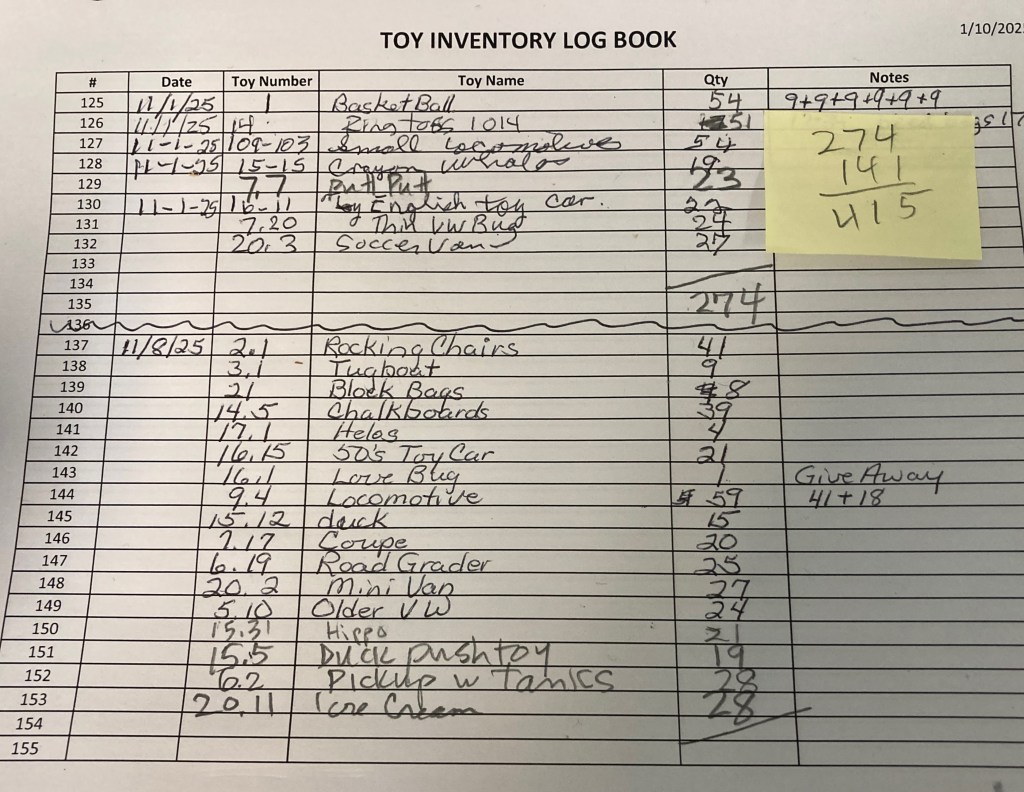 1/10/202
TOY INVENTORY LOG BOOK
# Date Toy Number Toy Name Qty Notes
125 11/1/25 1 BasketBall 54 9+9+9+9+9+9
126 11/1/25 14 Ring toss 1014 51
127 11-1-25 109-103 Small Locomotives 54
128 11-1-25 15-15 Crayon Whales 19
129 7,7 Putt Putt 23
130 11-1-25 16-11 English toy car. 22
131 7,20 Thin VW Bug 24
132 20,3 Soccer Van 27
133
134
135 274
136
137 11/8/25 2,1 Rocking Chairs 41
138 3,1 Tugboat 9
139 21 Block Bags 8
140 14.5 Chalkboards 39
141 17,1 Helos 4
142 16,15 50's Toy Car 21
143 16,1 Love Bug 1 Give Away
144 9.4 Locomotive 59 41+18
145 15.12 duck 15
146 7.17 Coupe 20
147 6.19 Road Grader 25
148 20.2 Mini Van 27
149 5.10 Older VW 24
150 15.31 Hippo 21
151 15.5 Duck push toy 19
152 6.2 Pickup w Tanks 28
153 20.11 Ice Cream 28
154
155
274
141
415